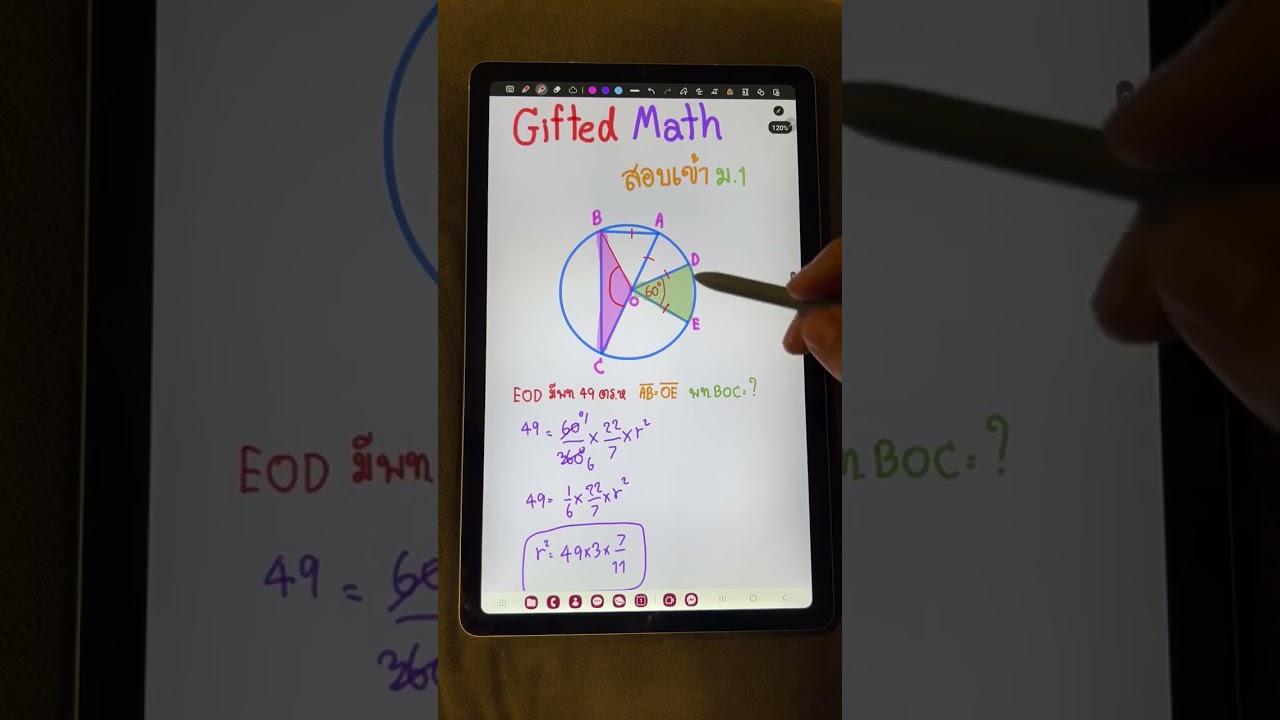 120%
Gifted Math
สอบเข้า ม.1
B A
D
60°
O
E
C
EOD มีพท 49 ตร.ห AB=OE พท BOC=?
49 = 60°1/360°6 × 22/7 × r²
49 = 1/6 × 22/7 × r²
r² = 49×3× 7/11
EOD มีพท
BOC=?
49 =